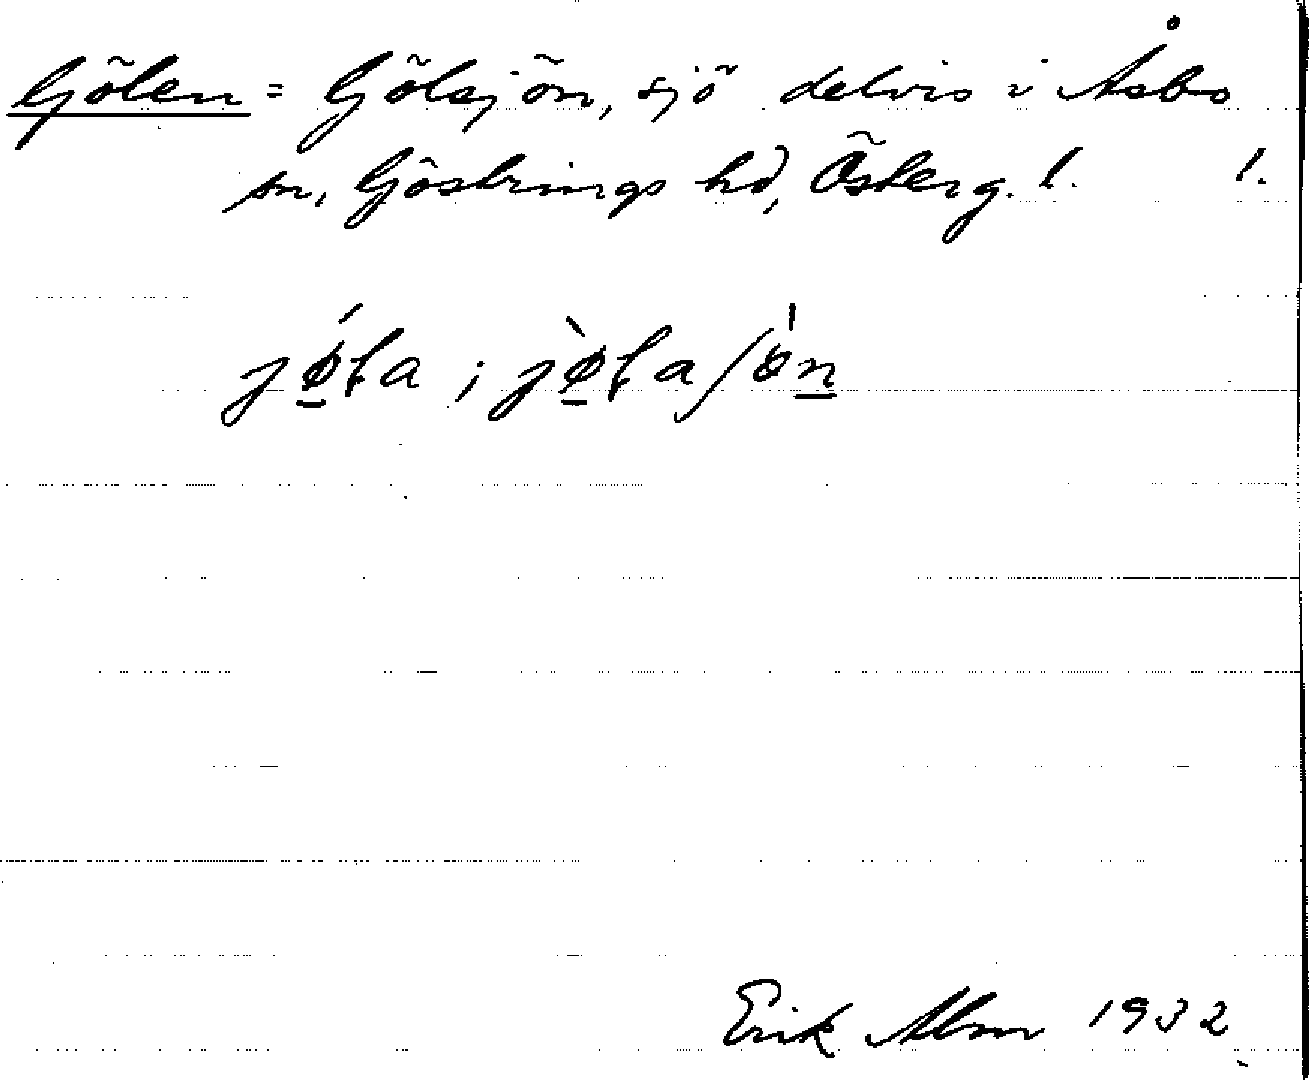 Gölen = Gölsjön, sjö delvis i Åsbo
sn, Göstrings hd, Österg. l. 1.
jǿ̲ɫa ; jø̲̀ɫaʃön̲
Erik Alm 1932